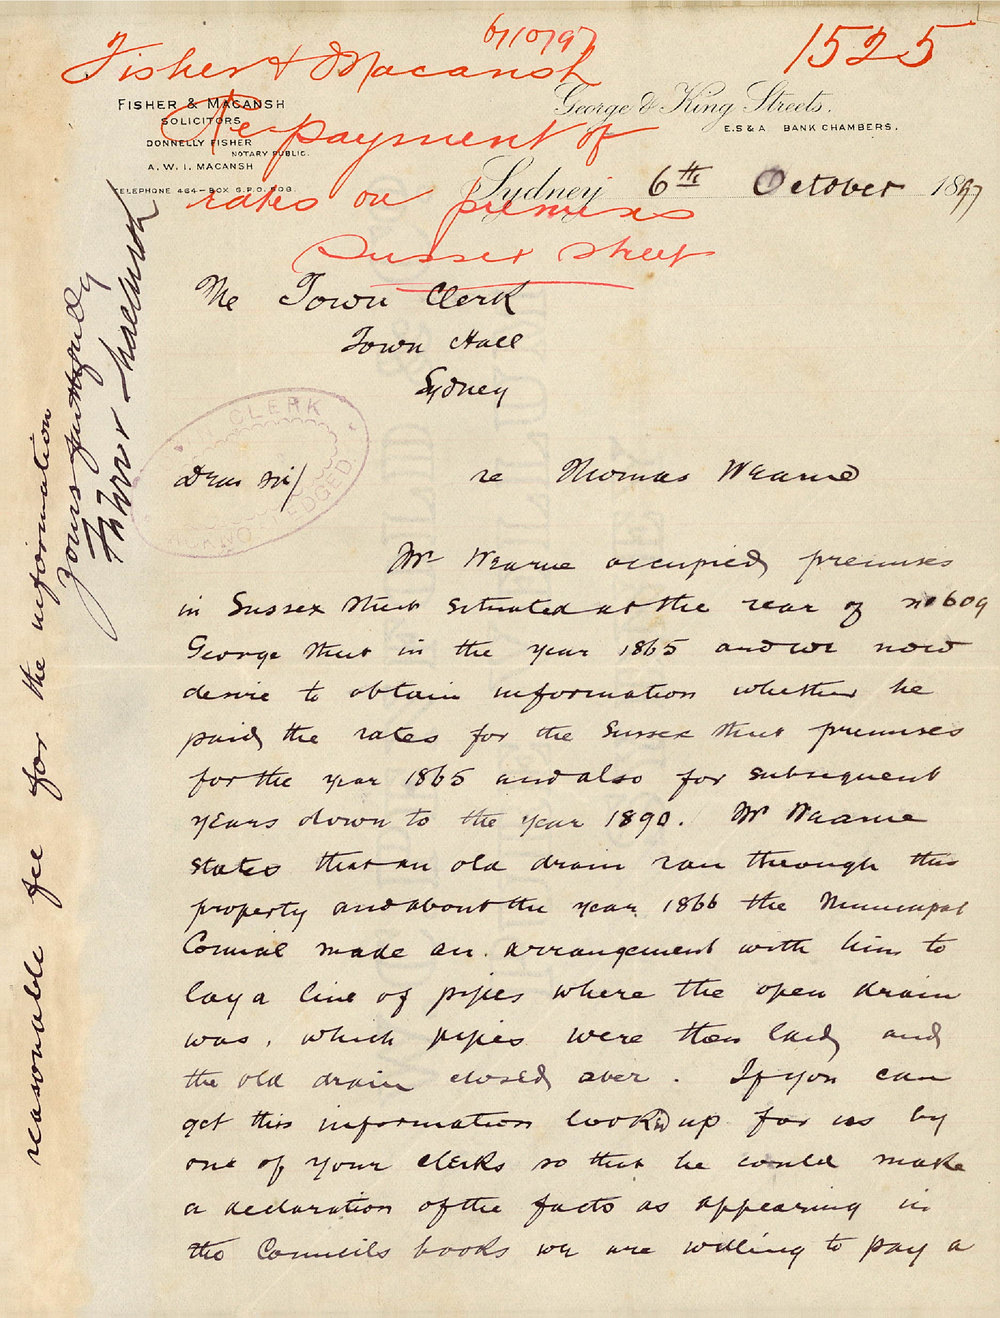 6/10/97
1525
Fisher & Macansh
Re-payment of
rates on premises
Sussex Street
FISHER & MACANSH
SOLICITORS
DONNELLY FISHER
NOTARY PUBLIC.
A. W. I. MACANSH
TELEPHONE 464-BOX G.P.O. 508.
George & King Streets.
E.S & A. BANK CHAMBERS.
Sydney 6th October 1897
The Town Clerk
Town Hall
Sydney
TOWN CLERK
ACKNOWLEDGED.
Dear Sir/ re Thomas Wearne
Mr Wearne occupied premises
in Sussex Street situated at the rear of no 609
George Street in the year 1865 and we now
desire to obtain information whether he
paid the rates for the Sussex Street premises
for the year 1865 and also for subsequent
years down to the year 1890. Mr Wearne
states that an old drain ran through this
property and about the year 1866 the Municipal
Council made an arrangement with him to
lay a line of pipes where the open drain
was, which pipes were then laid and
the old drain closed over. If you can
get this information looked up for us by
one of your clerks so that he could make
a declaration of the facts as appearing in
the Councils books we are willing to pay a
reasonable fee for the information
Yours faithfully
Fisher & Macansh